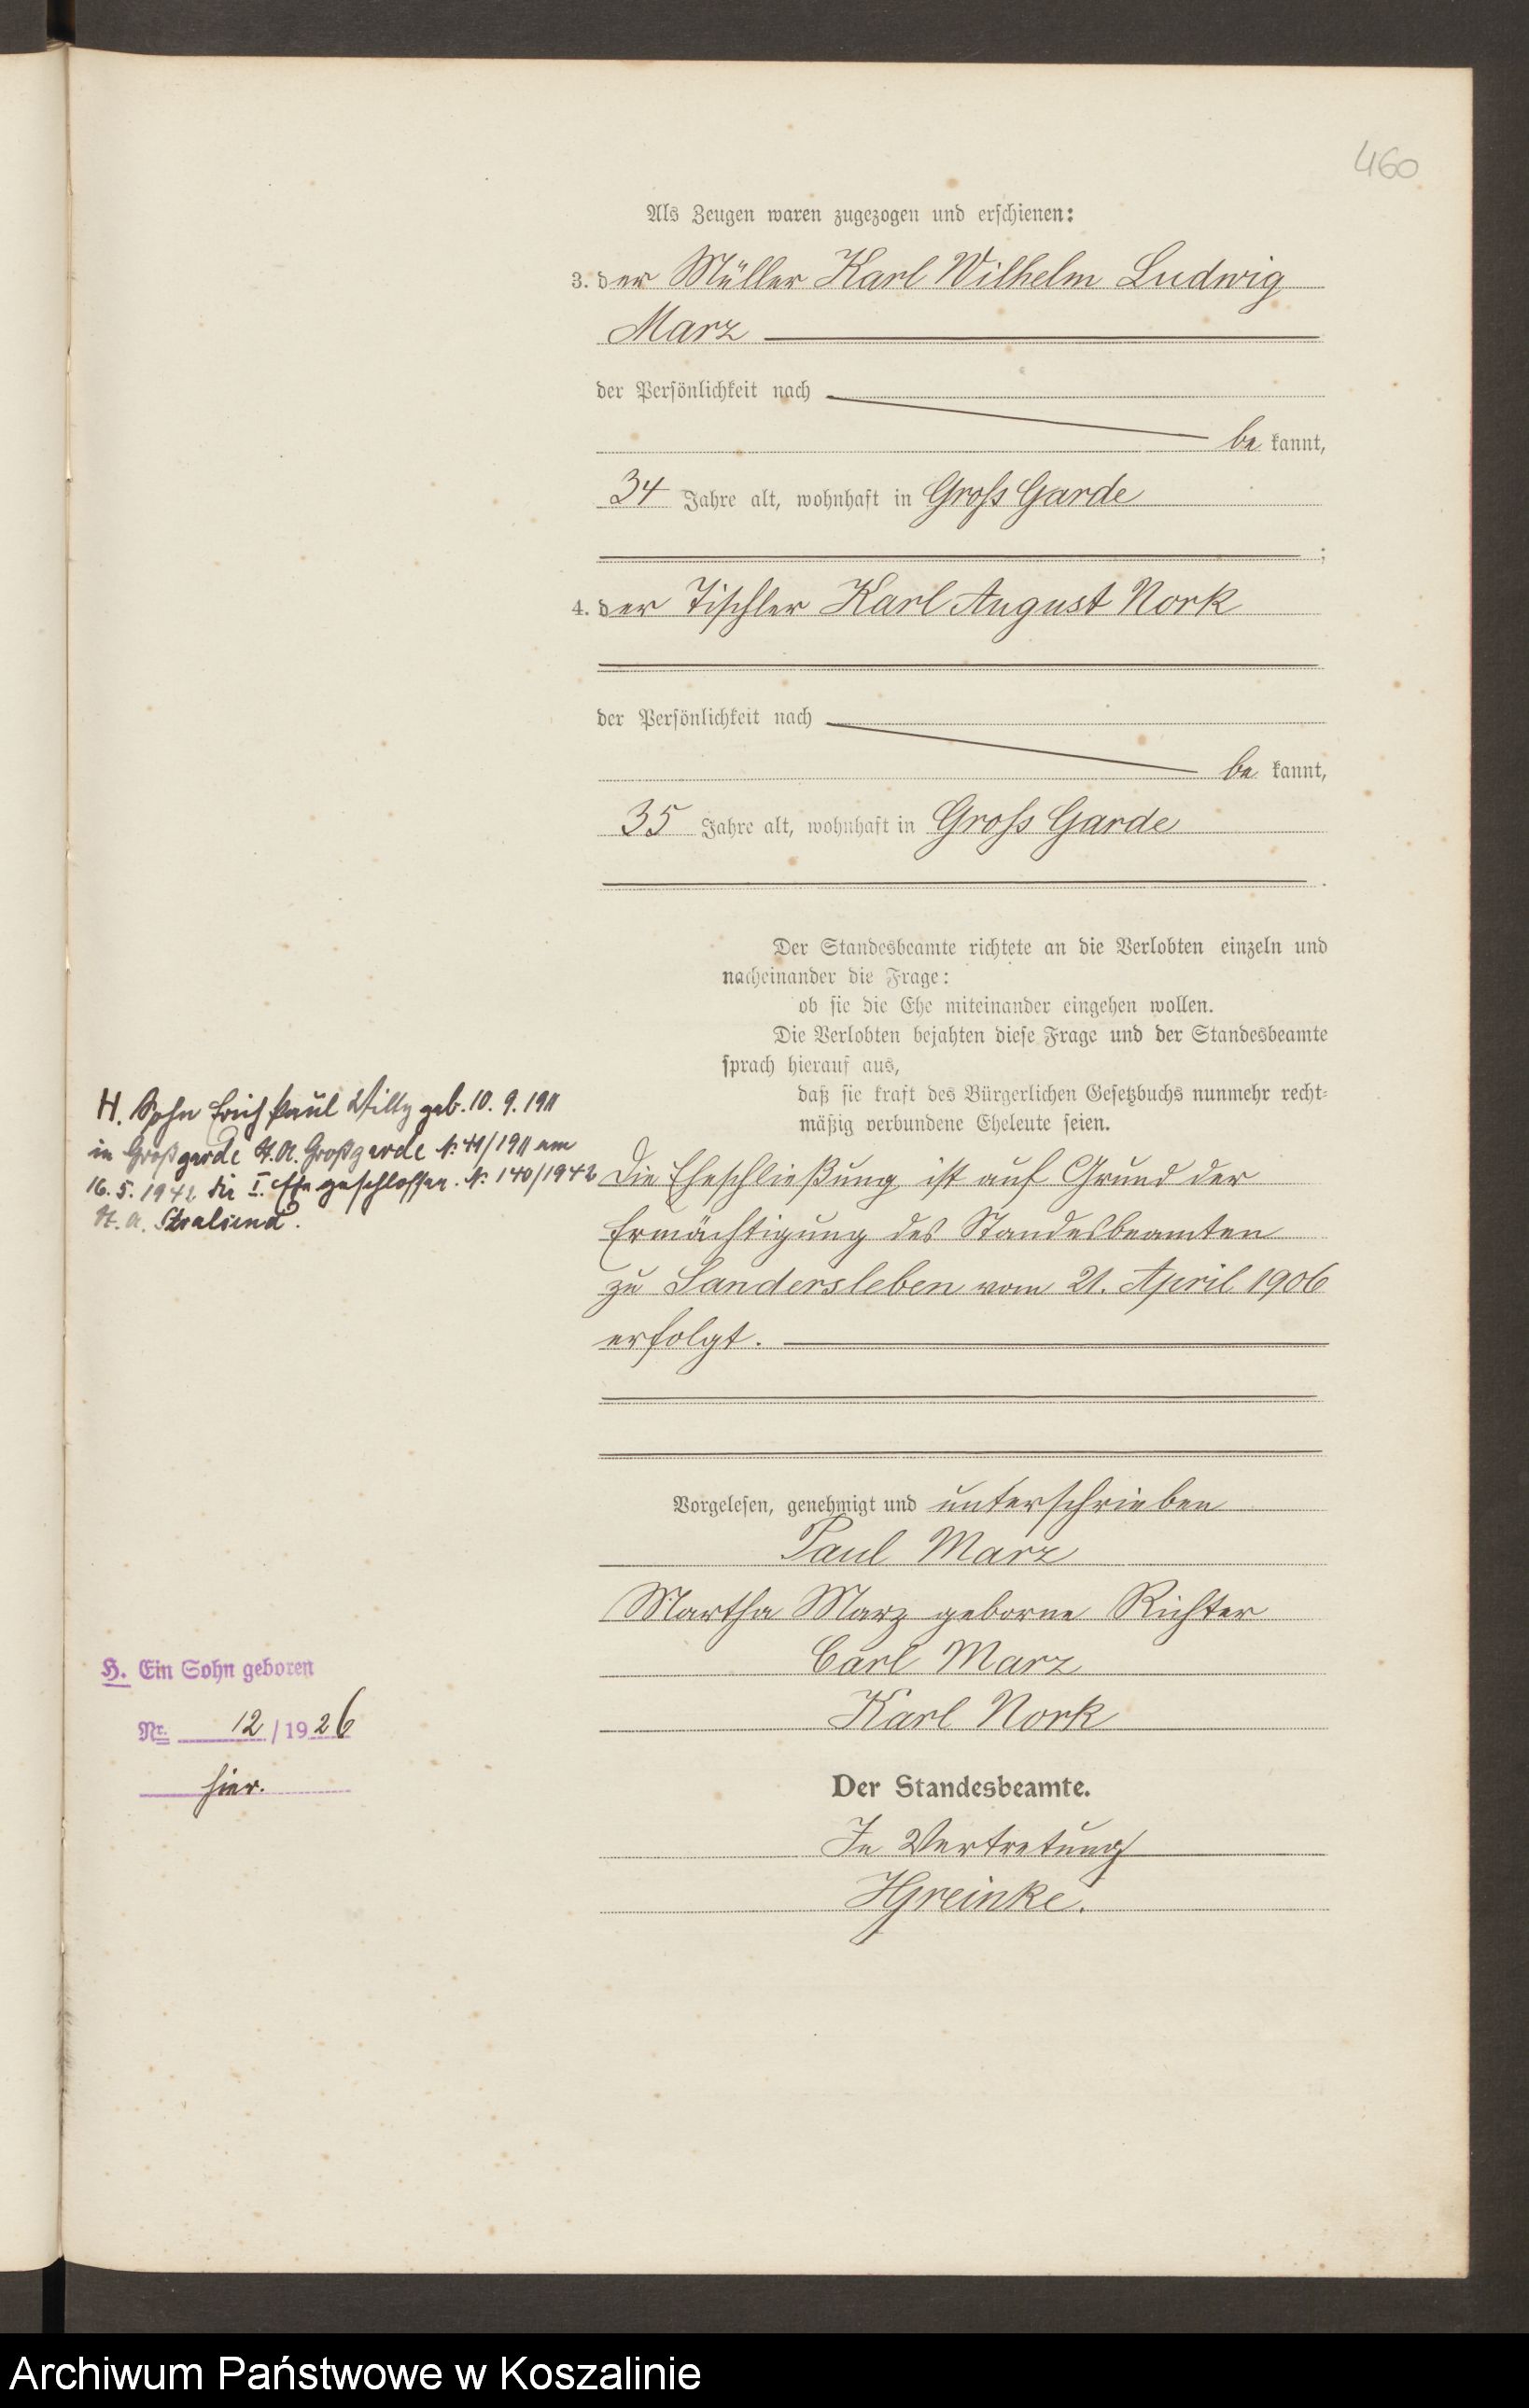 460
Als Zeugen waren zugezogen und erschienen:
3. der Müller Karl Wilhelm Ludwig
Marz
der Persönlichkeit nach
be kannt,
34 Jahre alt, wohnhaft in Gross Garde
;
4. der Tischler Karl August Nork
der Persönlichkeit nach
be kannt,
35 Jahre alt, wohnhaft in Gross Garde
.
Der Standesbeamte richtete an die Verlobten einzeln und
nacheinander die Frage:
ob sie die Ehe miteinander eingehen wollen.
Die Verlobten bejahten diese Frage und der Standesbeamte
sprach hierauf aus,
daß sie kraft des Bürgerlichen Gesetzbuchs nunmehr recht-
mäßig verbundene Eheleute seien.
H. Sohn Erich Paul Willy geb. 10. 9. 1911
in Großgarde St. A. Großgarde Nr. 41/1911 am
16. 5. 1942 die I. Ehe geschlossen. Nr. 140/1942
St. A. Stralsund.
Die Eheschließung ist auf Grund der
Ermächtigung des Standesbeamten
zu Sandersleben vom 21. April 1906
erfolgt.
Vorgelesen, genehmigt und unterschrieben
Paul Marz
Martha Marz geborne Richter
Carl Marz
Karl Nork
H. Ein Sohn geboren
Nr. 12 / 1926
hier.
Der Standesbeamte.
In Vertretung
HGreinke.
Archiwum Państwowe w Koszalinie